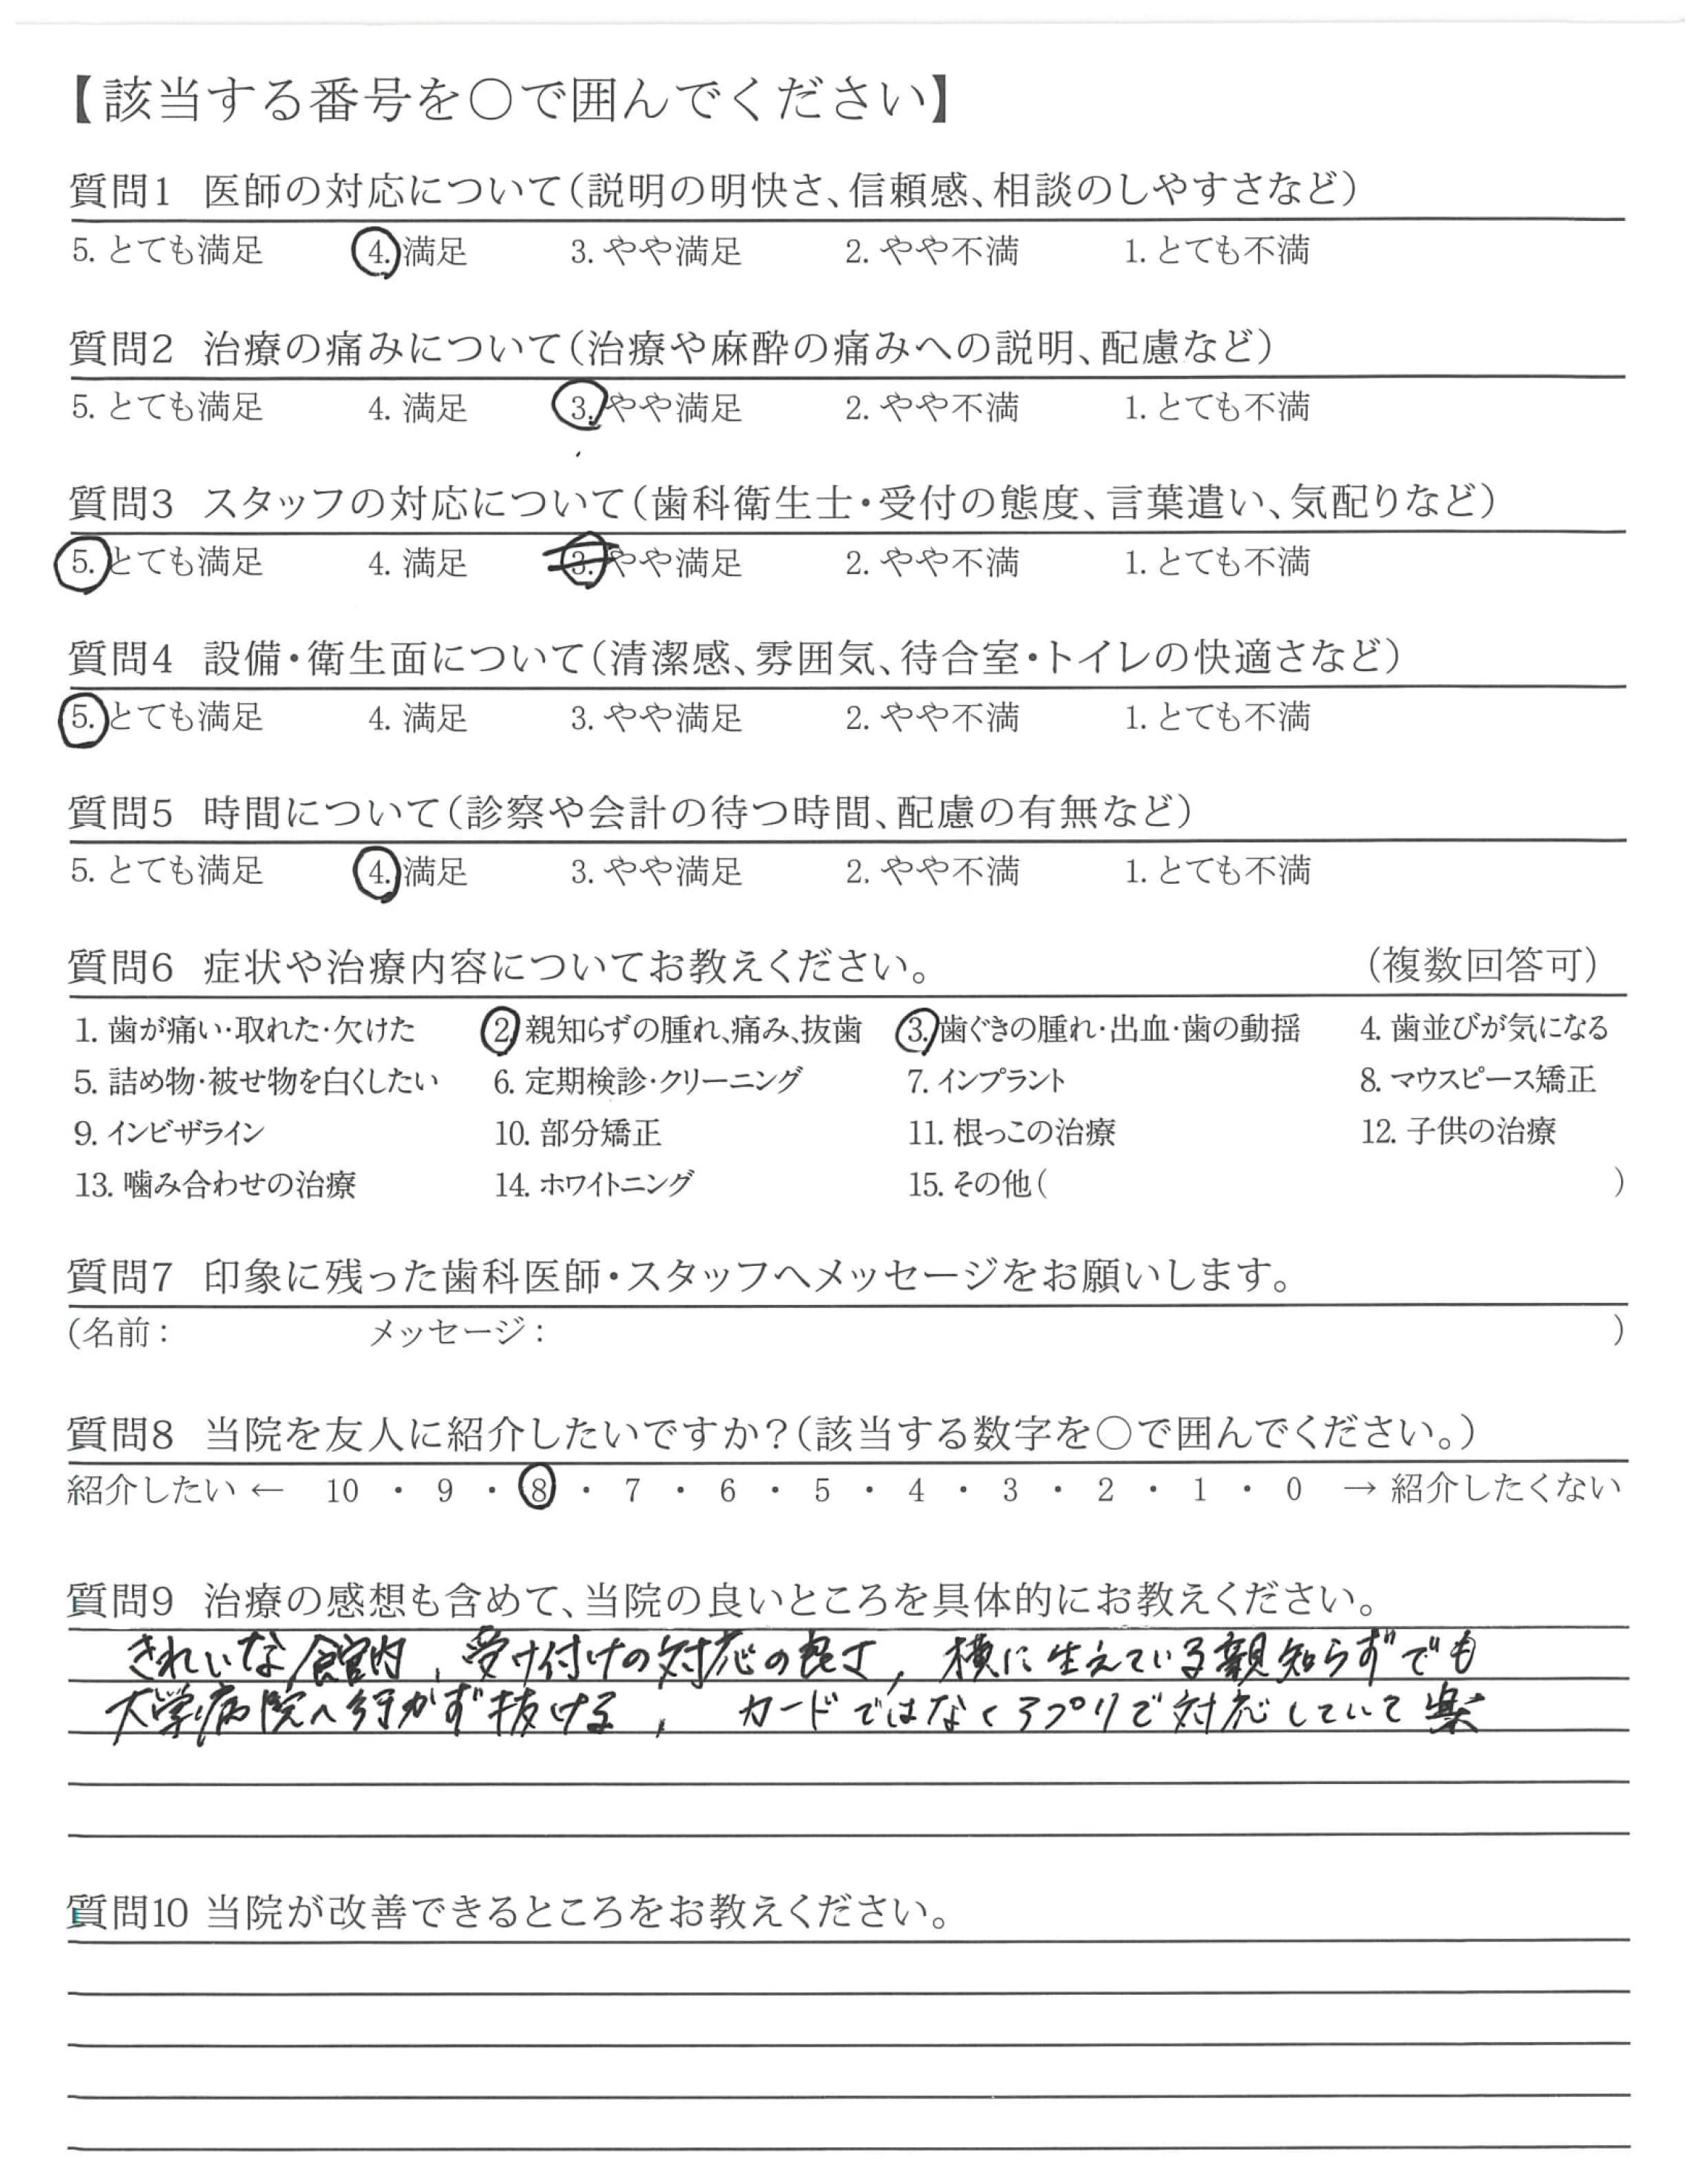 【該当する番号を○で囲んでください】
質問1 医師の対応について(説明の明快さ、信頼感、相談のしやすさなど)
5. とても満足 4. 満足 3. やや満足 2. やや不満 1. とても不満
質問2 治療の痛みについて(治療や麻酔の痛みへの説明、配慮など)
5. とても満足 4. 満足 3. やや満足 2. やや不満 1. とても不満
質問3 スタッフの対応について(歯科衛生士・受付の態度、言葉遣い、気配りなど)
5. とても満足 4. 満足 3. やや満足 2. やや不満 1. とても不満
質問4 設備・衛生面について(清潔感、雰囲気、待合室・トイレの快適さなど)
5. とても満足 4. 満足 3. やや満足 2. やや不満 1. とても不満
質問5 時間について(診察や会計の待つ時間、配慮の有無など)
5. とても満足 4. 満足 3. やや満足 2. やや不満 1. とても不満
質問6 症状や治療内容についてお教えください。 (複数回答可)
1. 歯が痛い・取れた・欠けた 2. 親知らずの腫れ、痛み、抜歯 3. 歯ぐきの腫れ・出血・歯の動揺 4. 歯並びが気になる
5. 詰め物・被せ物を白くしたい 6. 定期検診・クリーニング 7. インプラント 8. マウスピース矯正
9. インビザライン 10. 部分矯正 11. 根っこの治療 12. 子供の治療
13. 噛み合わせの治療 14. ホワイトニング 15. その他( )
質問7 印象に残った歯科医師・スタッフへメッセージをお願いします。
(名前: メッセージ: )
質問8 当院を友人に紹介したいですか?(該当する数字を○で囲んでください。)
紹介したい ← 10 ・ 9 ・ 8 ・ 7 ・ 6 ・ 5 ・ 4 ・ 3 ・ 2 ・ 1 ・ 0 → 紹介したくない
質問9 治療の感想も含めて、当院の良いところを具体的にお教えください。
きれいな館内、受け付けの対応の良さ、横に生えている親知らずでも
大学病院へ行かず抜ける、カードではなくアプリで対応していて楽
質問10 当院が改善できるところをお教えください。